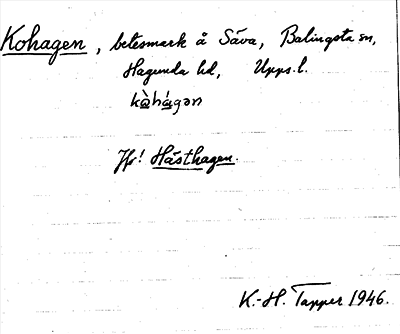 Kohagen, betesmark å Säva, Balingsta sn,
Hagunda hd, Upps. l.
kòhágən
Jfr! Hästhagen.
K.-H. Tapper 1946.